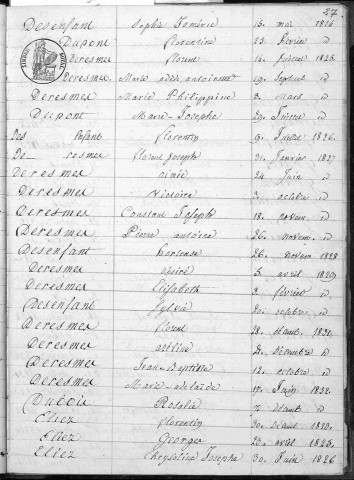 27.
Desenfant Sophie 13. mai 1824
Dupont florentine 25. février id
Deresmes florent 14. juillet 1825.
Deresmes Marie adèle antoinette 19. id
Deresmes Marie Philippine 3. Mars id
Dupont Marie-Josephe 29. id
Des enfant florentin 9. 1826.
De resmes florent joseph 31. Janvier 1827
Deresmes aimée 24 Juin id
Deresmes Victoire 3. octobre id
Deresmes Constant Joseph 18. id
Deresmes Pierre antoine 26. novem. id
Desenfant hortense 26. novem 1828
Deresmes désiré 5. avril 1829
Deresmes Elisabeth 3. février id
Desenfant Sylvie octobre id
Deresmes florent 28. 1831.
Deresmes décembre id
Deresmes Jean-Baptiste 12. octobre id
Deresmes Marie adelaïde 17. Juin 1832.
Dubois Rosalie 7. id
Eliez florentin 30. 1810.
Eliez Georges 23. avril 1823.
Eliez Chrysoline Josephe 30. Juin 1826